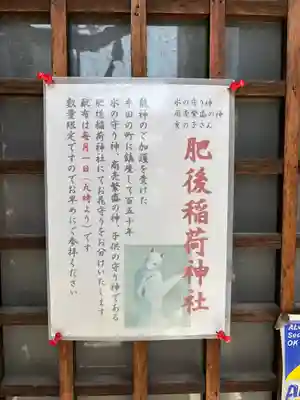 水の守り神
商売繁盛の神
肥後稲荷神社
龍神のご加護を受けた
半田の町に鎮座して百五十年
水の守り神、商売繁盛の神、子供の守り神である
肥後稲荷神社にてお花守りをお分けいたします
献布は毎月一日(九時より)です
数量限定ですのでお早めにご参拝ください